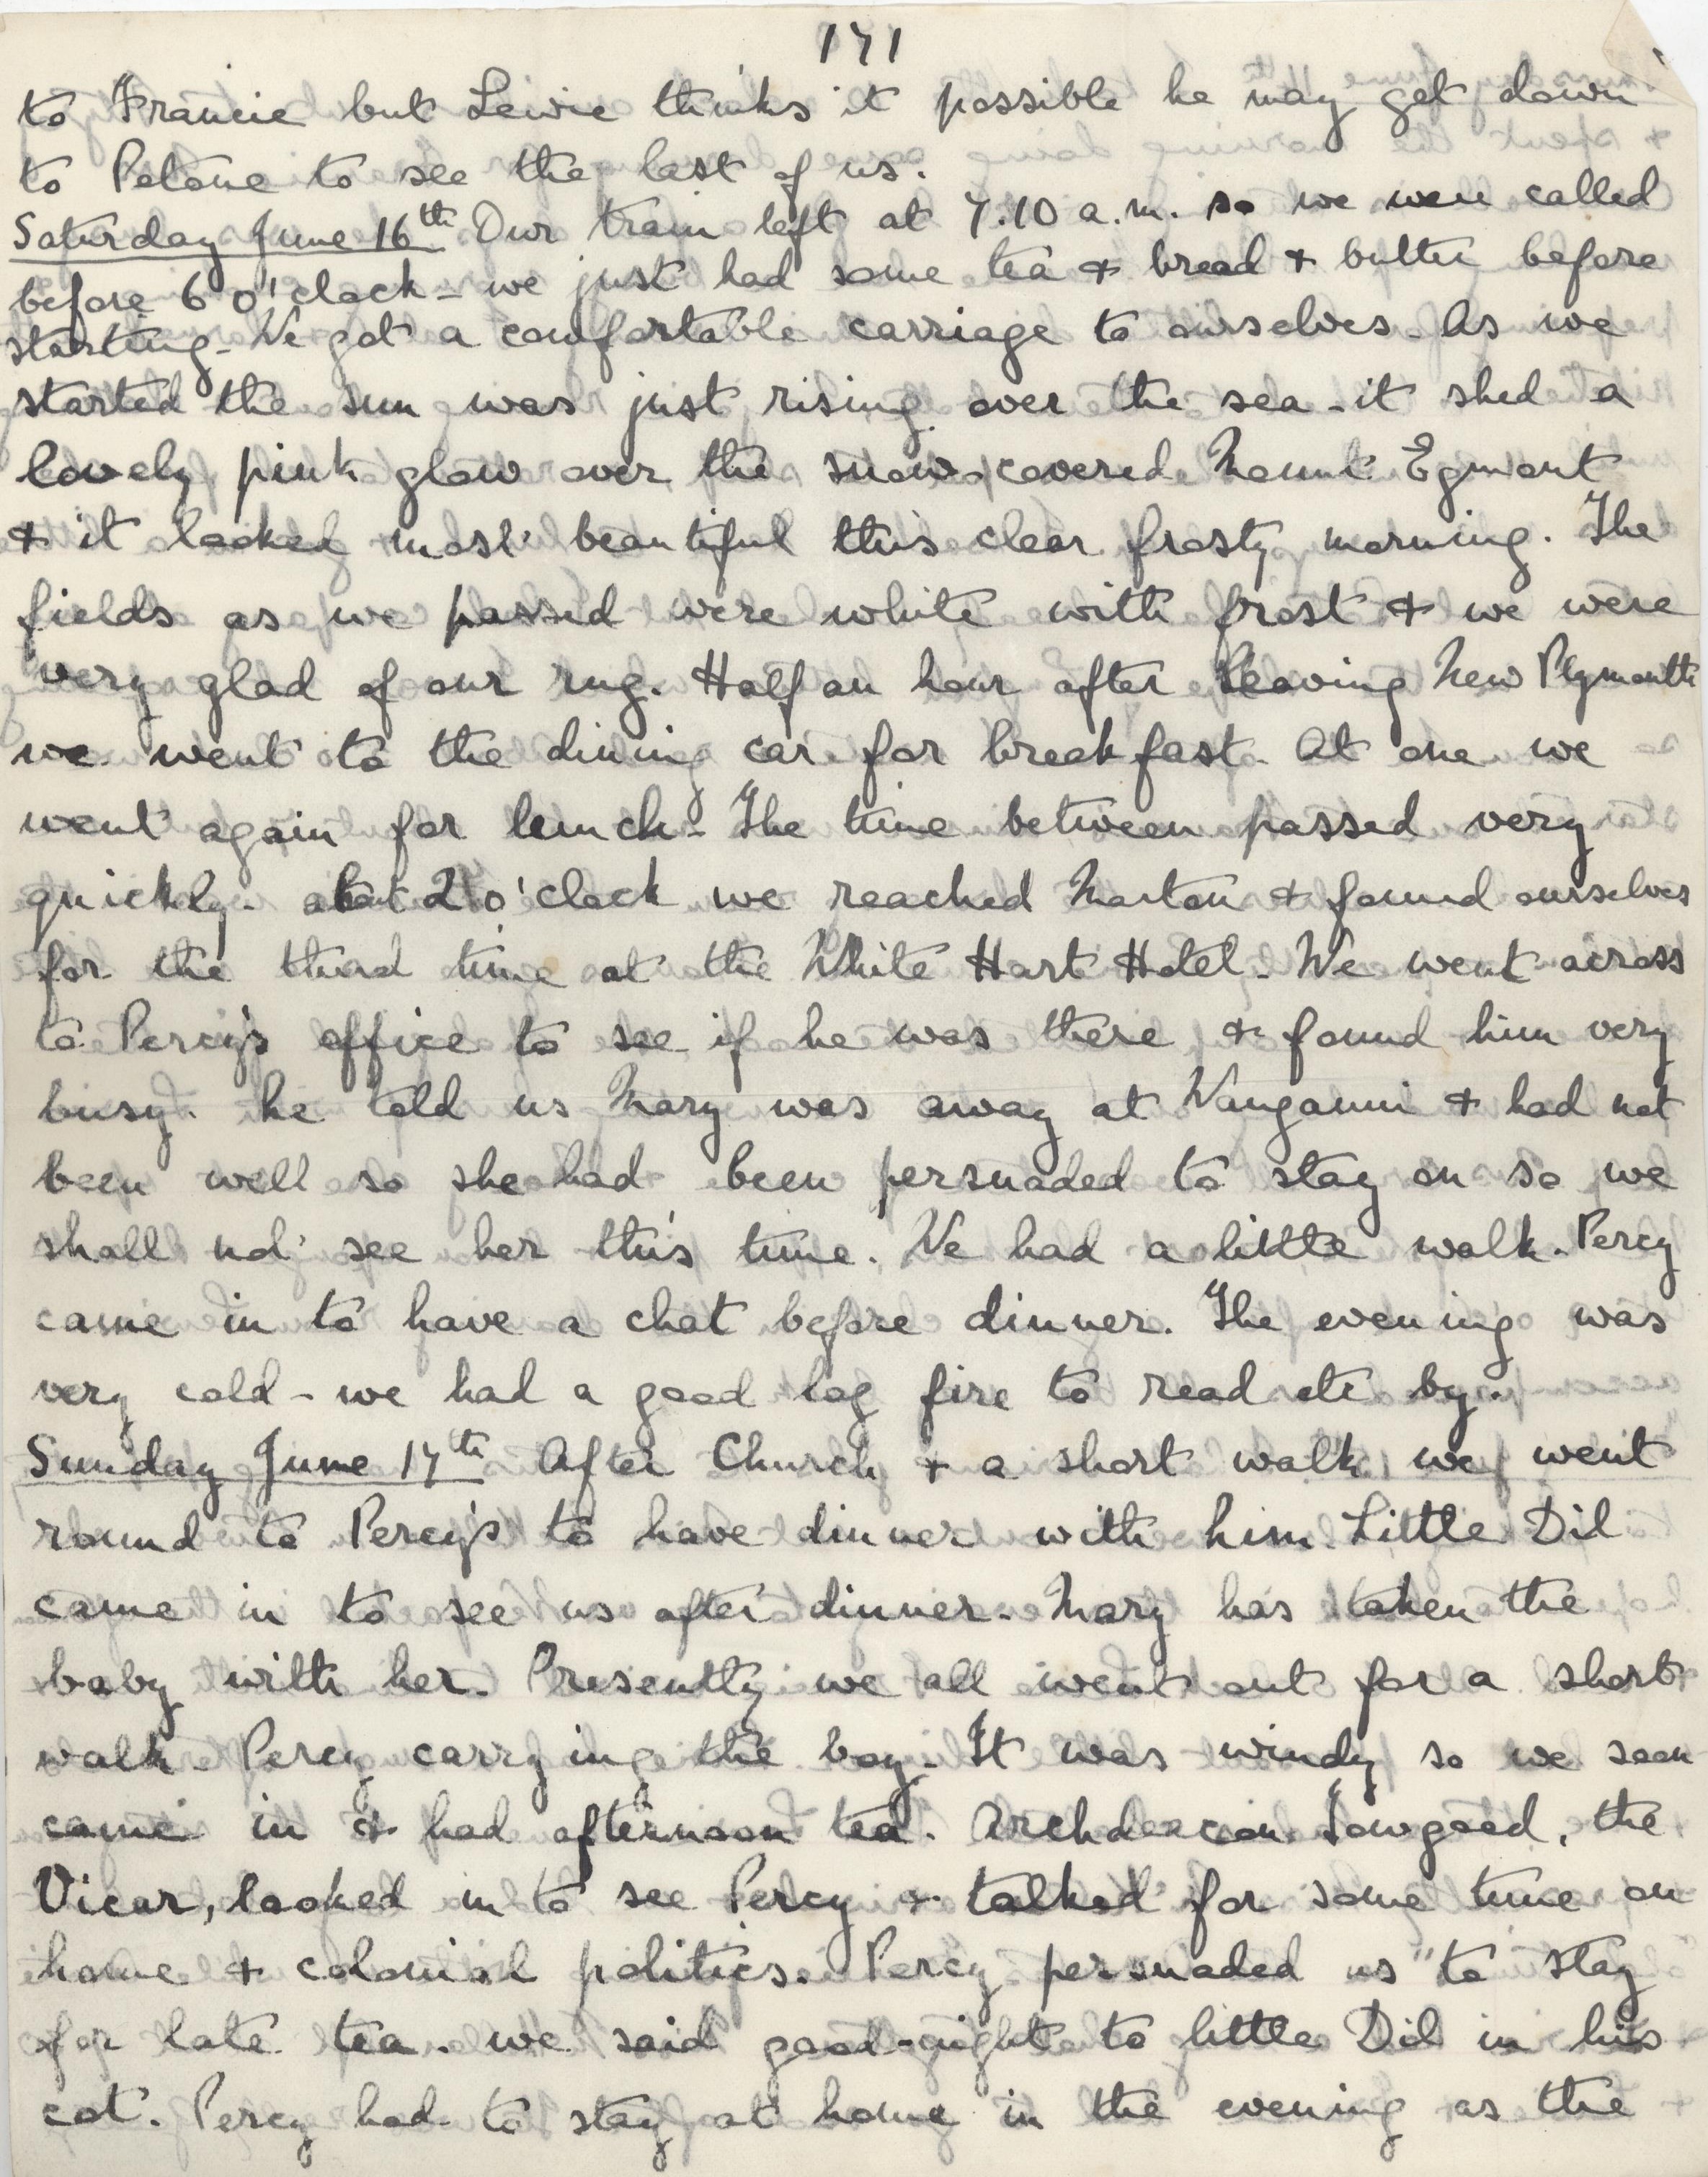 171
to Francie but Lewie thinks it possible he may get down
to Petone to see the last of us.
Saturday June 16th Our train left at 7.10 a.m. so we were called
before 6 o'clock - we just had some tea & bread & butter before
starting - We got a comfortable carriage to ourselves. As we
started the sun was just rising over the sea - it shed a
lovely pink glow over the snow covered Mount Egmont
& it looked most beautiful this clear frosty morning. The
fields as we passed were white with frost & we were
very glad of our rug. Half an hour after leaving New Plymouth
we went to the dining car for breakfast. At one we
went again for lunch - The time between passed very
quickly. at 2 o'clock we reached Marton & found ourselves
for the third time at the White Hart Hotel - We went across
to Percy's office to see if he was there & found him very
busy. he told us Mary was away at Wanganui & had not
been well so she had been persuaded to stay on so we
shall not see her this time. We had a little walk. Percy
came in to have a chat before dinner. The evening was
very cold - we had a good log fire to read etc by.
Sunday June 17th After Church & a short walk we went
round to Percy's to have dinner with him. Little Did
came in to see us after dinner. Mary has taken the
baby with her. Presently we all went out for a short
walk - Percy carrying the boy - It was windy so we soon
came in & had afternoon tea. Archdeacon Towgood, the
Vicar, looked in to see Percy & talked for some time on
home & colonial politics. Percy persuaded us to stay
for late tea. we said good-night to little Did in his
cot. Percy had to stay at home in the evening as the